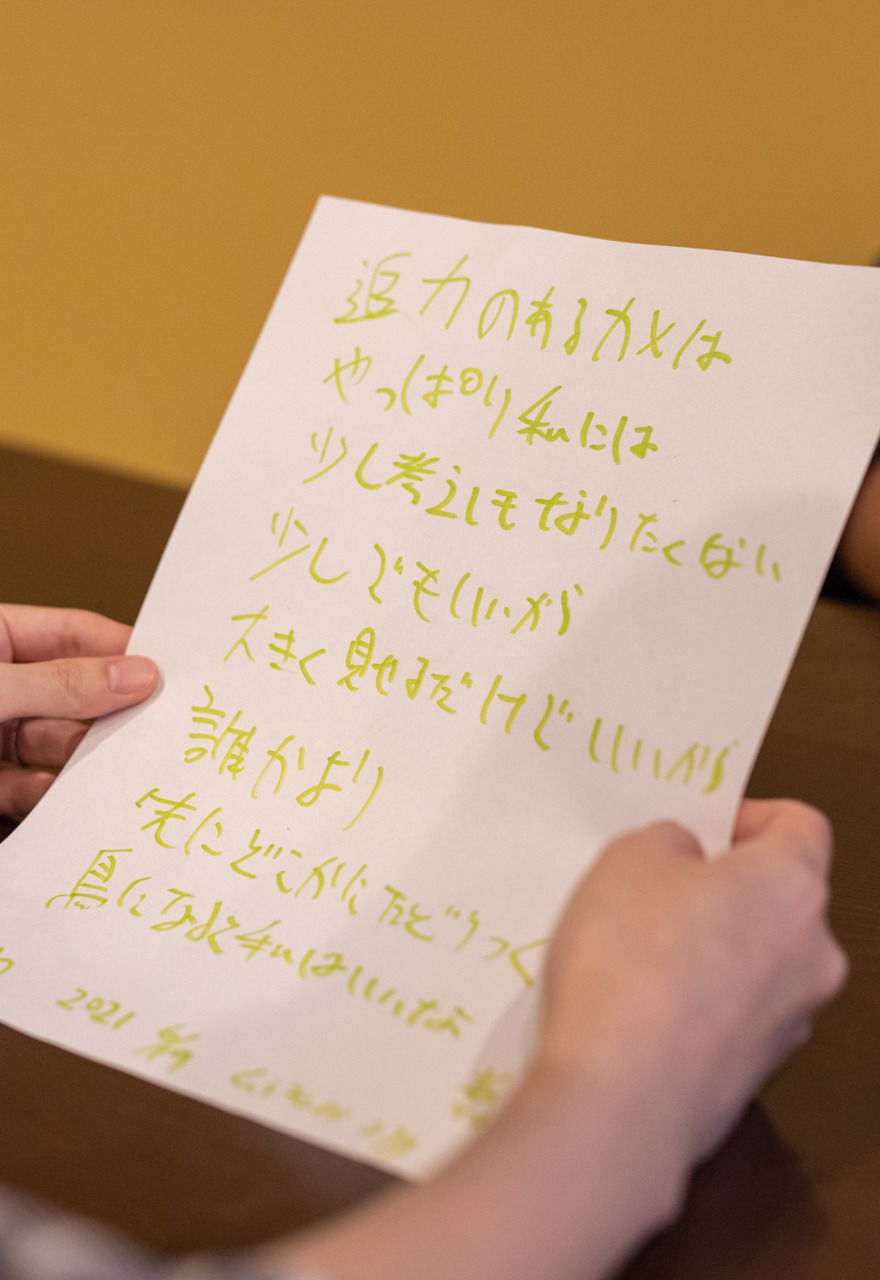 迫力のあるカメは
やっぱり私には
少し考えしもなりたくない
少しでもいいから
大きく見せるだけどいいから
誰かより
先にどこかにたどりつく
鳥になると私はいいなあ
2021 6/19